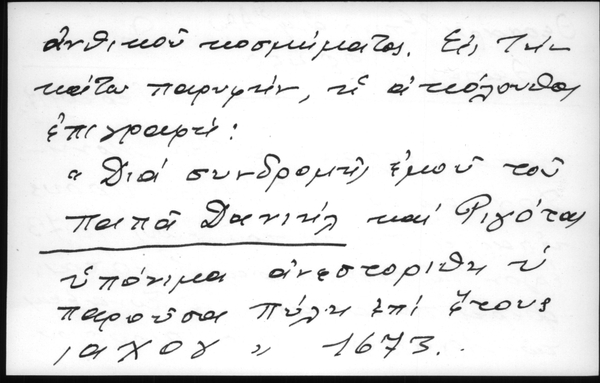 ἀνθικοῦ κοσμήματος. Εἰς τὴν
κάτω παρυφήν, ἡ ἀκόλουθος
ἐπιγραφή:
"Διά συνδρομῆς ἐμοῦ τοῦ
παπᾶ Δανιήλ καί Ριζότας
ὑπόνιμα ἀνεστορίθη ὑ
παροῦσα πύλη ἐπί ἔτους
͵αχογ " 1673..